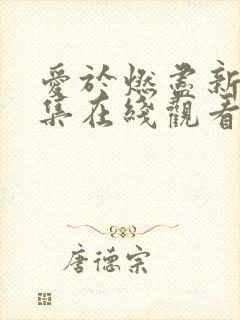 愛於燃盡新
集在綫觀看
唐德宗